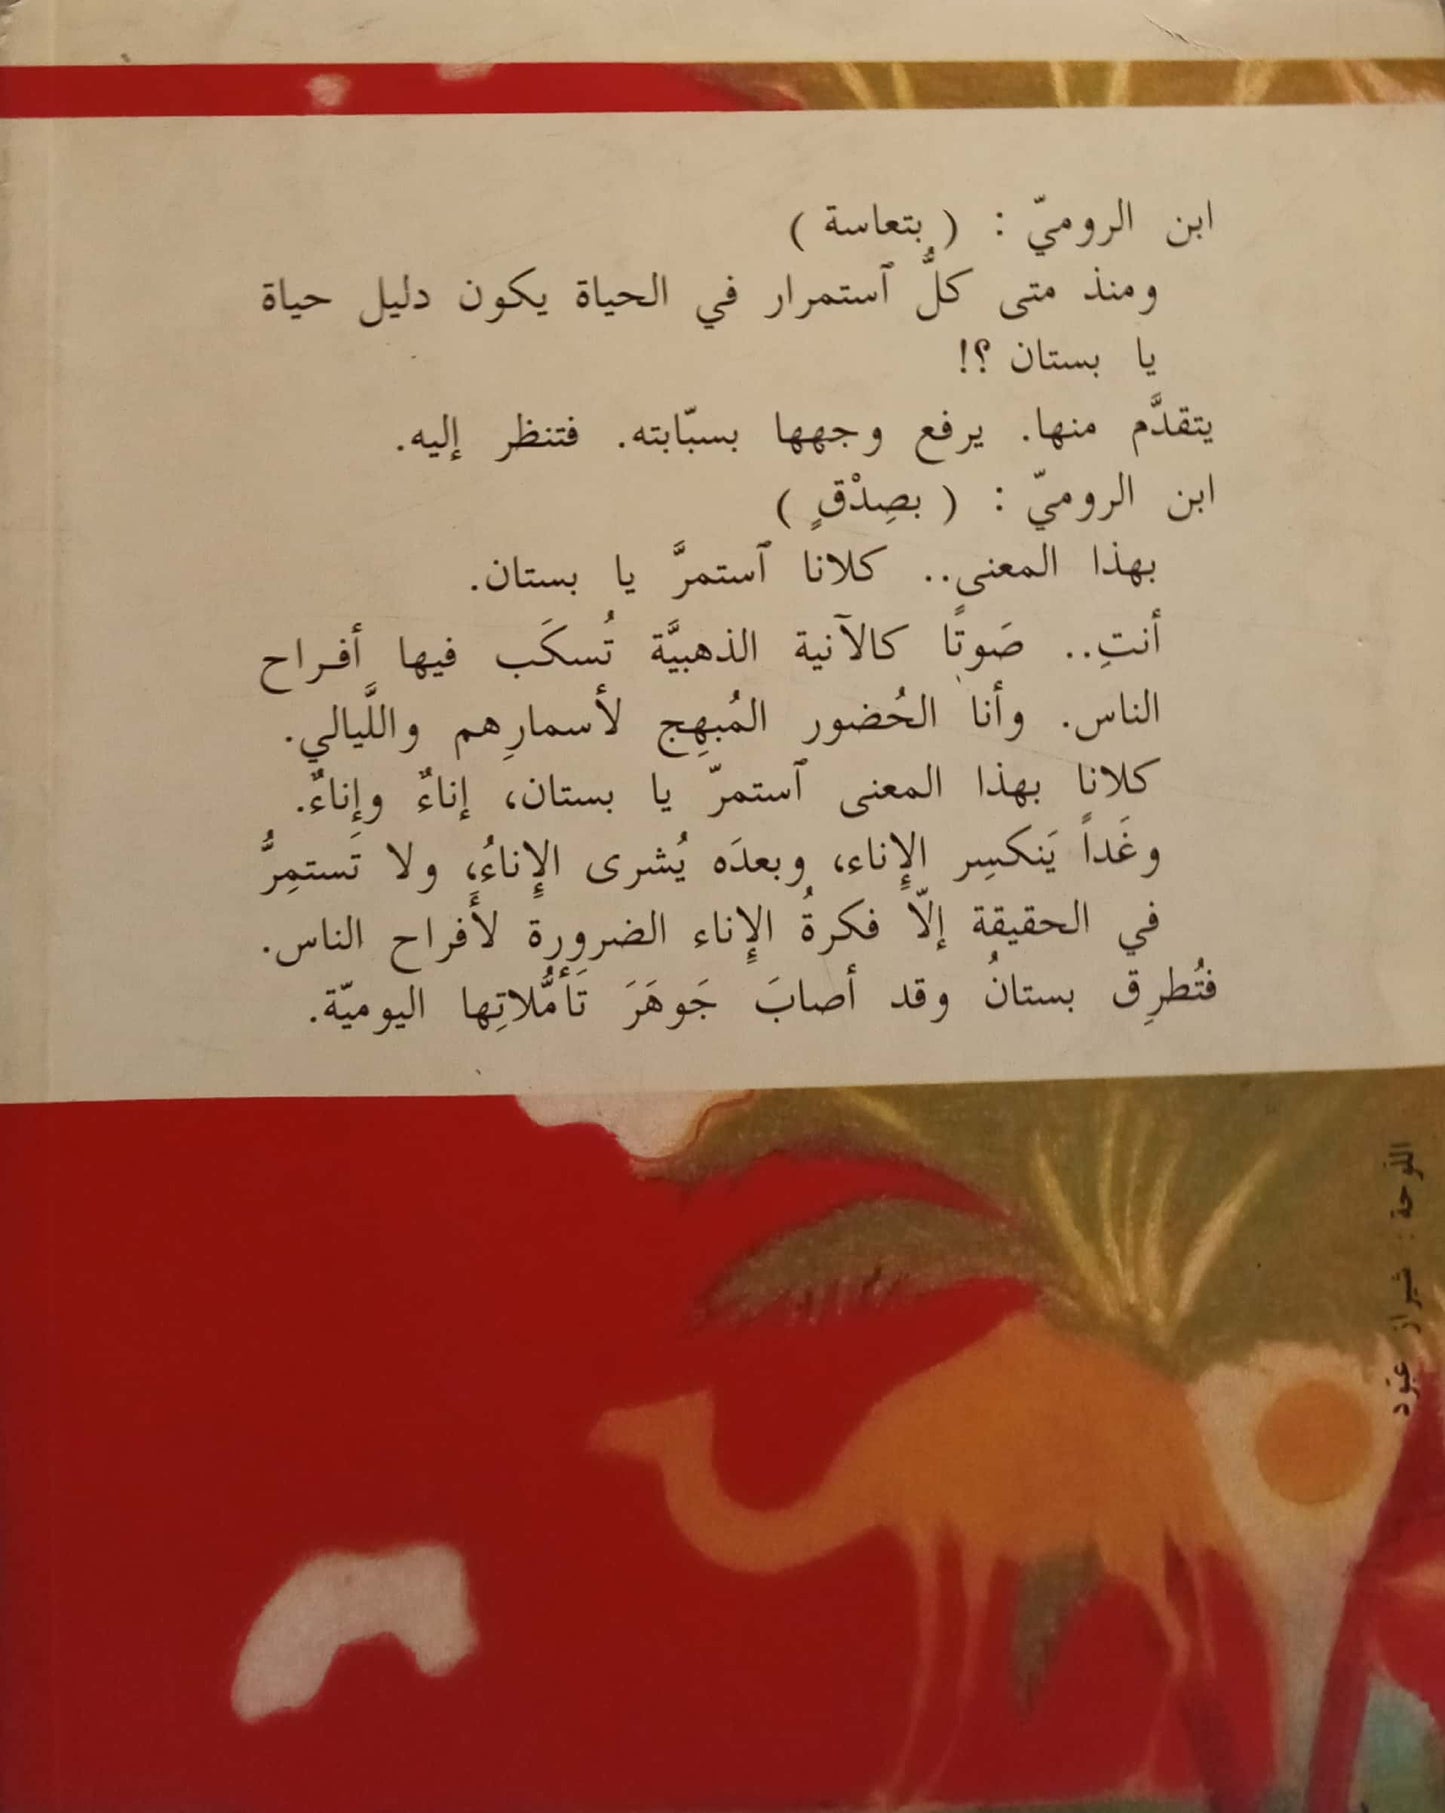 ابن الروميّ : ( بتعاسة )
ومنذ متى كلُّ ٱستمرار في الحياة يكون دليل حياة
يا بستان ؟!
يتقدَّم منها. يرفع وجهها بسبّابته. فتنظر إليه.
ابن الروميّ : ( بصِدْقٍ )
بهذا المعنى.. كلانا ٱستمرَّ يا بستان.
أنتِ.. صَوتًا كالآنية الذهبيَّة تُسكَب فيها أفراح
الناس. وأنا الحُضور المُبهِج لأسمارِهم واللَّيالي.
كلانا بهذا المعنى ٱستمرّ يا بستان، إناءٌ وإناءٌ.
وغَداً يَنكسِر الإِناء، وبعدَه يُشرى الإِناءُ، ولا تَستمِرُّ
في الحقيقة إلّا فكرةُ الإِناء الضرورة لأَفراح الناس.
فتُطرِق بستانُ وقد أصابَ جَوهَرَ تَأمُّلاتِها اليوميّة.
اللوحة : شيراز عبّود